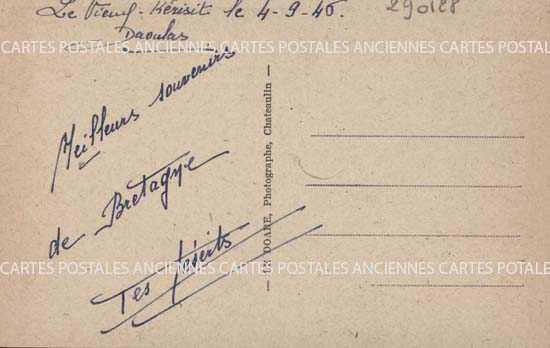 Le Fieuf-Kérisit le 4-9-40.
290188
Daoulas
CARTES POSTALES ANCIENNES CARTES POSTALES ANCIENNES CARTES POSTALES
Meilleurs souvenirs
de Bretagne
Tes
— LE DOARE, Photographe, Chateaulin —
CARTES POSTALES ANCIENNES CARTES POSTALES ANCIENNES CARTES POTALES